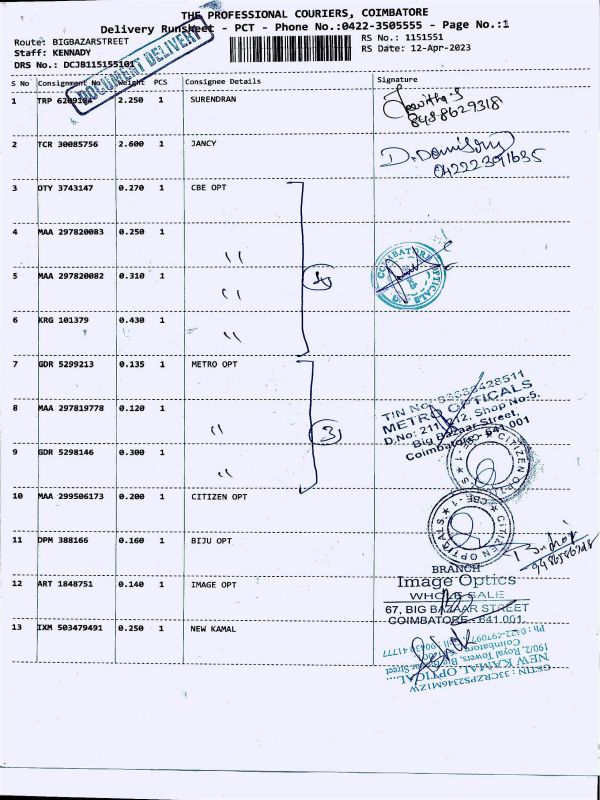 THE PROFESSIONAL COURIERS, COIMBATORE
Delivery Runsheet - PCT - Phone No.:0422-3505555 - Page No.:1
Route: BIGBAZARSTREET
RS No.: 1151551
Staff: KENNADY
RS Date: 12-Apr-2023
DRS No.: DCJB115155101
DOCUMENT DELIVERY
S No Consignment No Weight PCS Consignee Details Signature
1 TRP 2.250 1 SURENDRAN
8488629318
2 TCR 30085756 2.600 1 JANCY
04222391635
3 OTY 3743147 0.270 1 CBE OPT
4 MAA 297820083 0.250 1 "
5 MAA 297820082 0.310 1 "
COIMBATORE OPTICALS
6 KRG 101379 0.430 1 "
7 GDR 5299213 0.135 1 METRO OPT
TIN No.
METRO OPTICALS
8 MAA 297819778 0.120 1 "
D.No: 211, 212, Shop No:5,
Big Bazaar Street,
Coimbatore - 641 001
3
9 GDR 5298146 0.300 1 "
CITIZEN OPTICALS CBE-1
10 MAA 299506173 0.200 1 CITIZEN OPT
CITIZEN OPTICALS CBE-1
11 DPM 388166 0.160 1 BIJU OPT
BRANCH
12 ART 1848751 0.140 1 IMAGE OPT
Image Optics
WHOLE SALE
67, BIG BAZAAR STREET
COIMBATORE - 641 001
13 IXM 503479491 0.250 1 NEW KAMAL
GSTIN : 33CRZPS2346M1ZW
NEW KAMAL OPTICAL
190/2, Royal Towers, Big Bazaar Street
Coimbatore